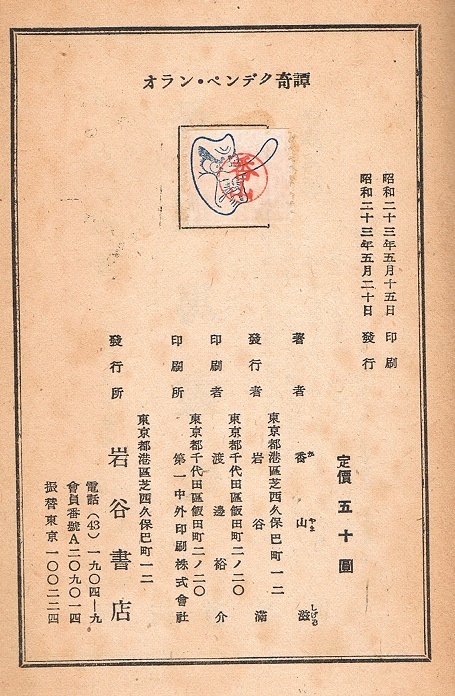 オラン・ペンデク奇譚
昭和二十三年五月十五日 印刷
昭和二十三年五月二十日 發行
定價 五十圓
著者 香山滋
か やま しげる
東京都港區芝西久保巴町一二
發行者 岩谷滿
東京都千代田區飯田町二ノ二〇
印刷者 渡邊裕介
東京都千代田區飯田町二ノ二〇
印刷所 第一中外印刷株式會社
東京都港區芝西久保巴町一二
發行所 岩谷書店
電話(43)一九〇四―九
會員番號A二〇九〇一四
振替東京一〇〇二二四